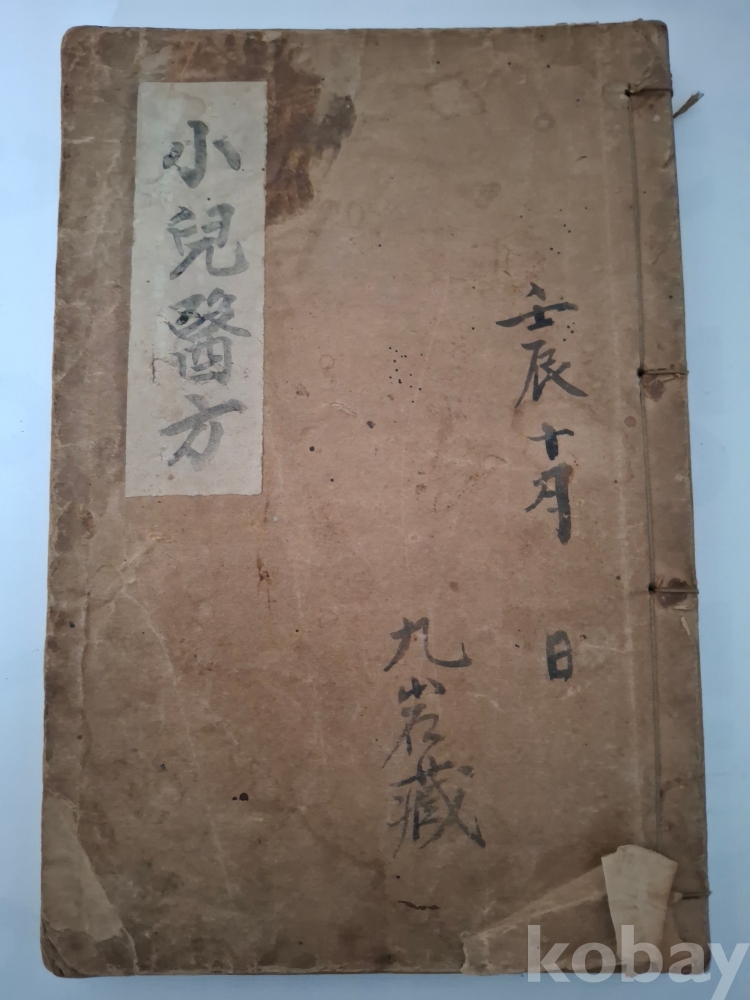 壬辰十月 日
九岩藏
小兒醫方
kobay